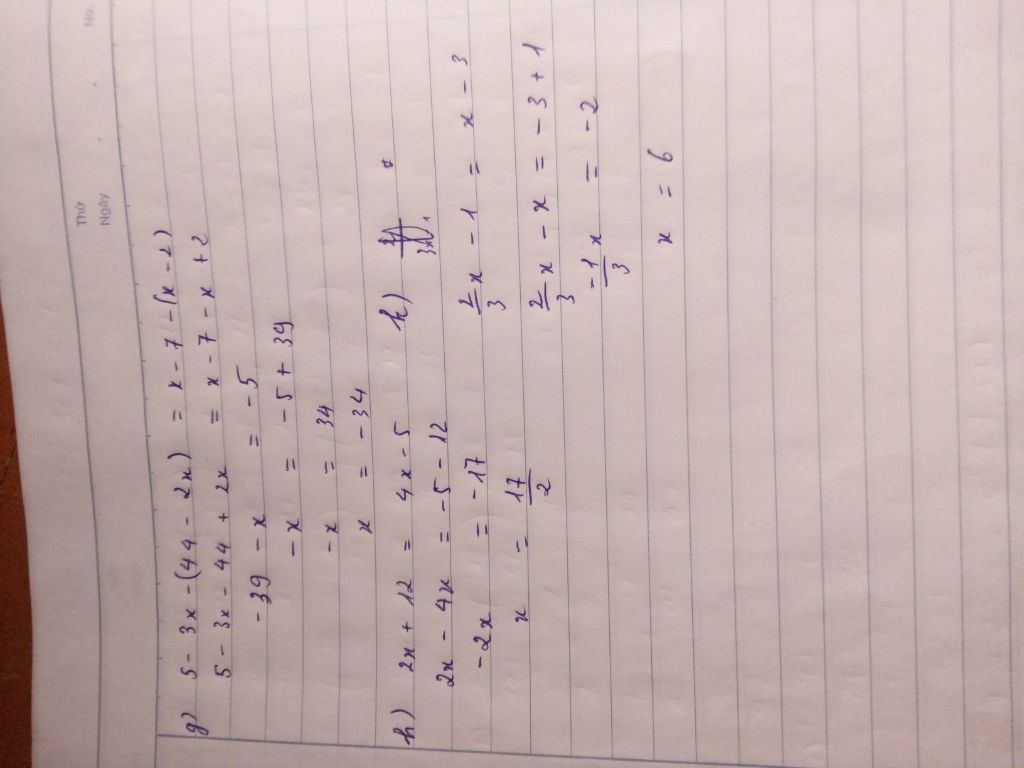 No.
Thứ
Ngày
g) 5 - 3x - (44 - 2x) = x - 7 - (x - 2)
5 - 3x - 44 + 2x = x - 7 - x + 2
-39 - x = -5
-x = -5 + 39
-x = 34
x = -34
h) 2x + 12 = 4x - 5
2x - 4x = -5 - 12
-2x = -17
x = 17/2
k)
2/3 x - 1 = x - 3
2/3 x - x = -3 + 1
-1/3 x = -2
x = 6